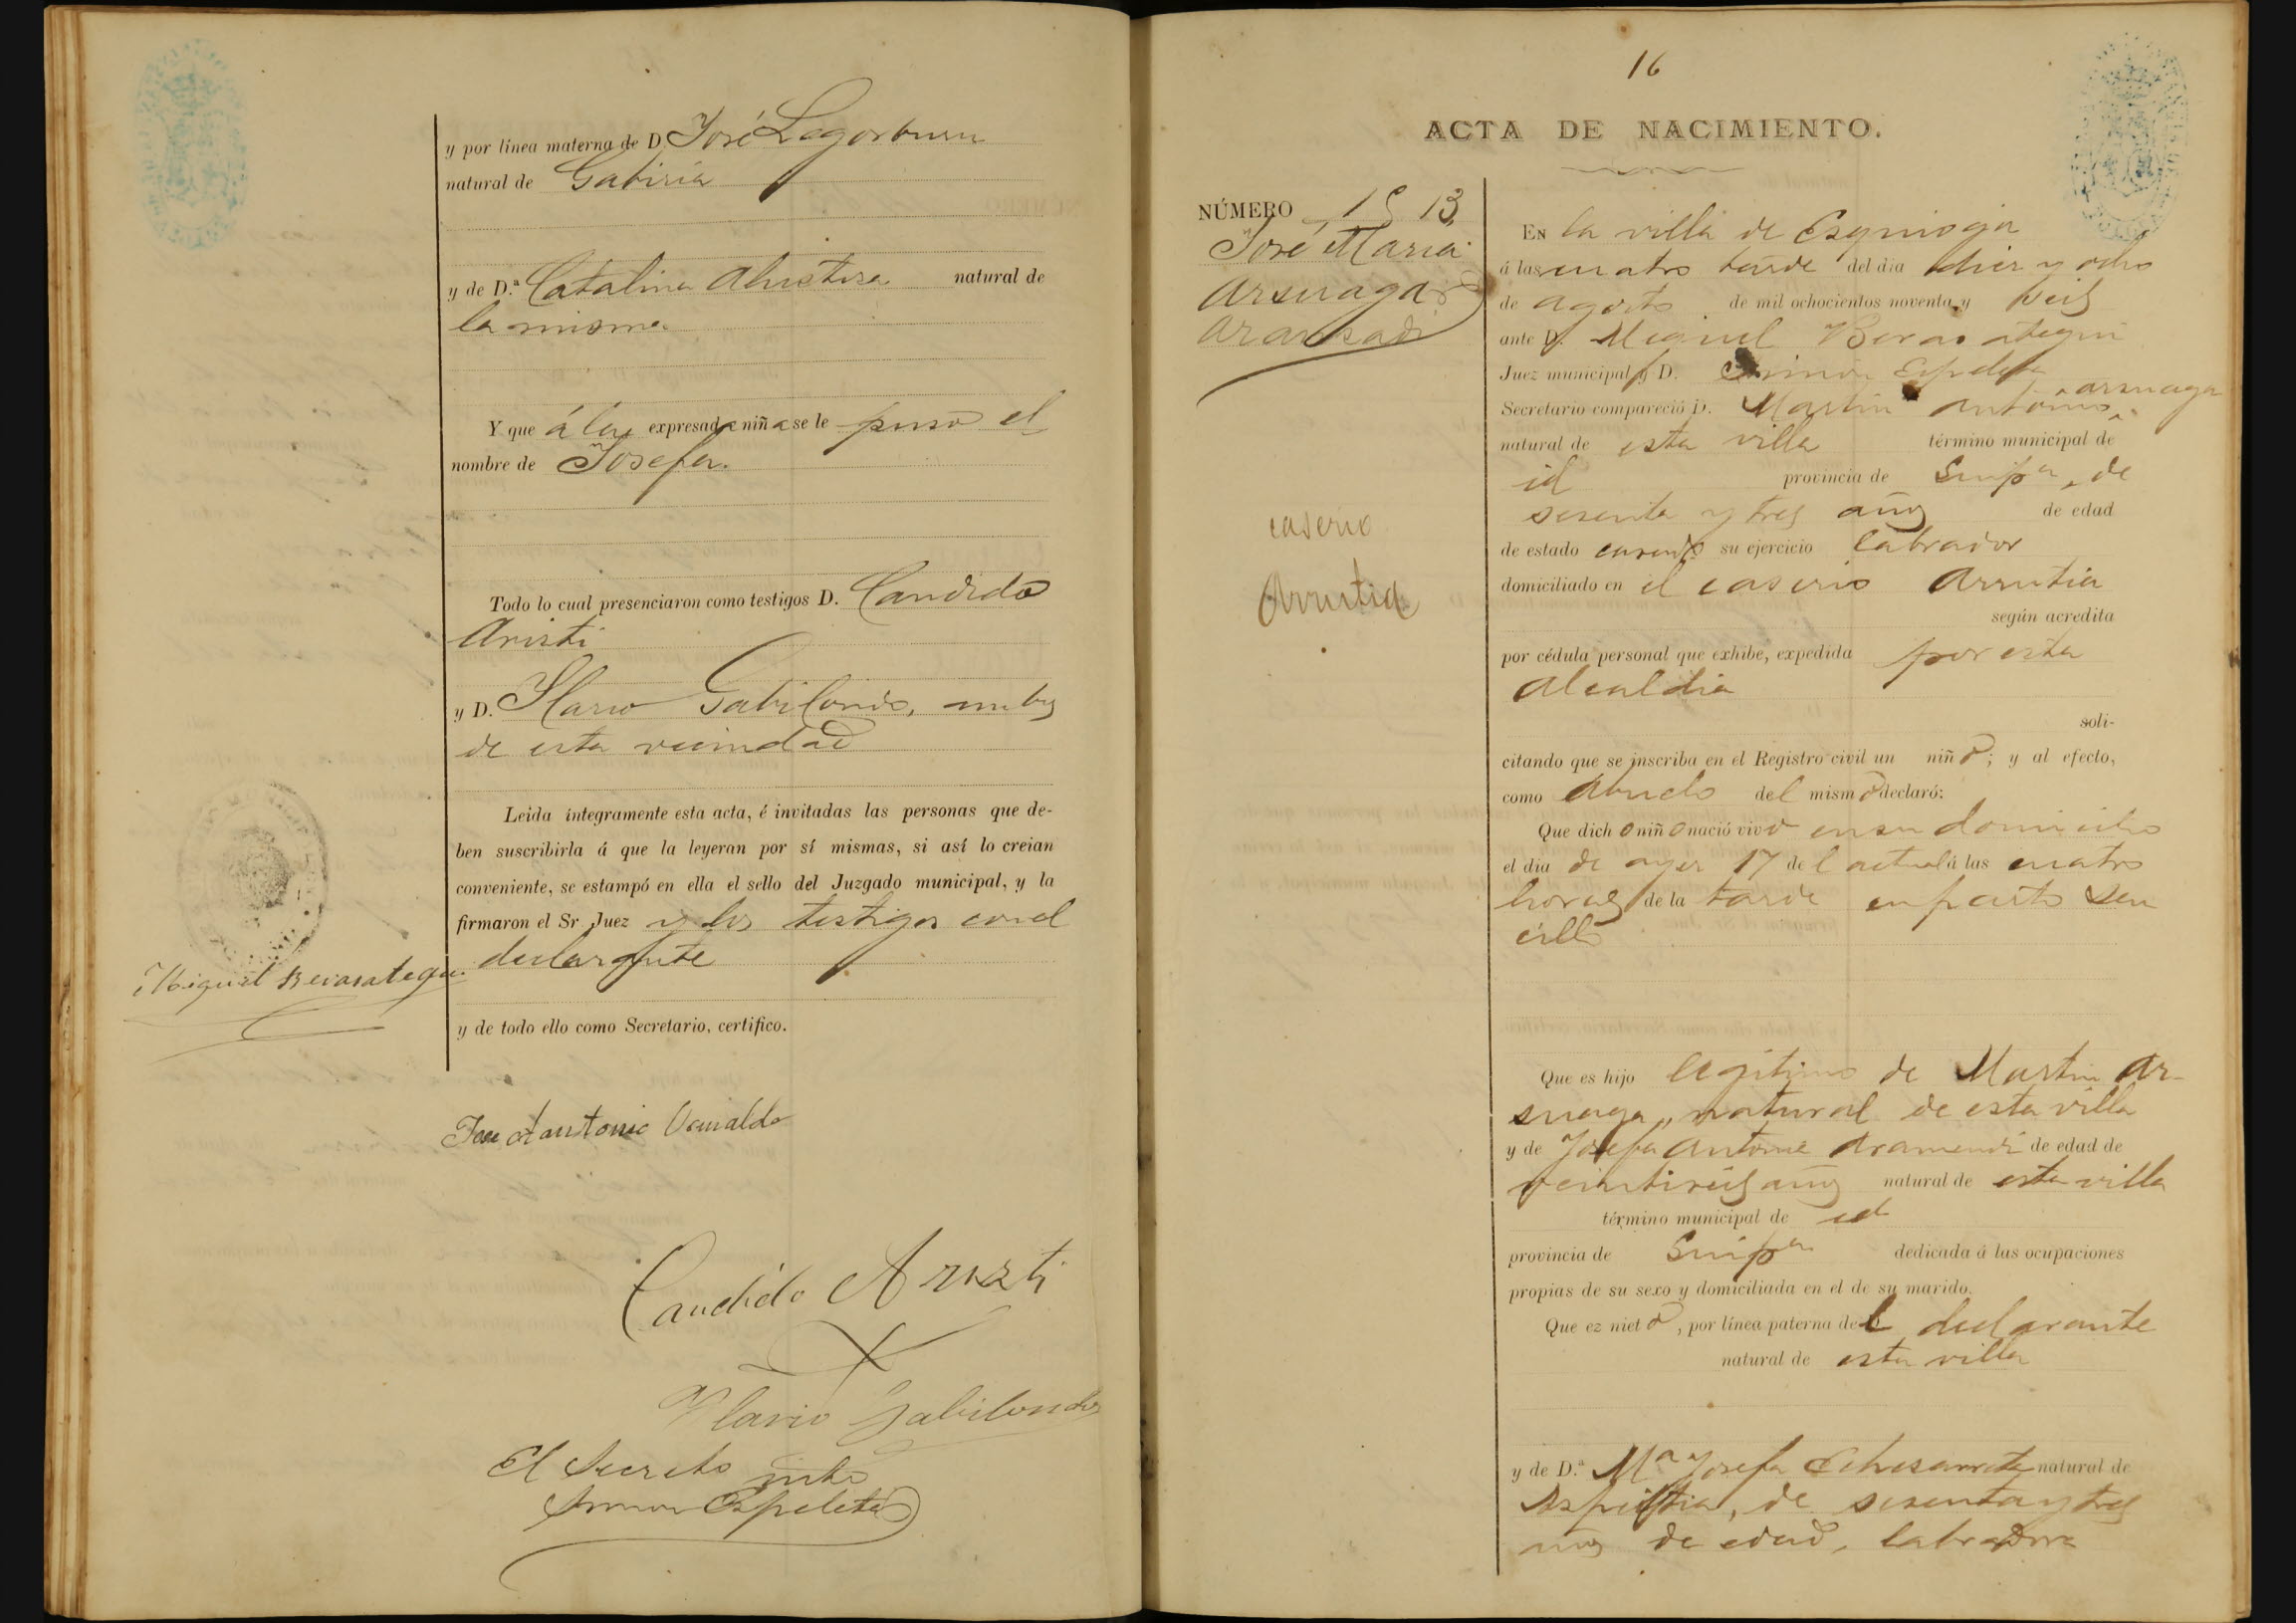 y por línea materna de D. José Legorburu
natural de Gabiria
y de D.ª Catalina Alustiza natural de
la misma.
Y que á la expresada niña se le puso el
nombre de Josefa.
Todo lo cual presenciaron como testigos D. Candido
Aristi
y D. Ilario Gabilondo, ambos
de esta vecindad
Leida íntegramente esta acta, é invitadas las personas que de-
ben suscribirla á que la leyeran por sí mismas, si así lo creian
conveniente, se estampó en ella el sello del Juzgado municipal, y la
firmaron el Sr. Juez y los testigos con el
declarante
Miguel Berasategui
y de todo ello como Secretario, certifico.
Jose Antonio
Candido Aristi
Ylario Gabilondo
El Secreto
Simon Espeleta
16
ACTA DE NACIMIENTO.
NÚMERO 13
José Maria
Arsuaga
caserio
Arrutia
En la villa de Esquioja
á las cuatro tarde del dia diez y ocho
de agosto de mil ochocientos noventa y seis
ante D. Miguel Berasategui
Juez municipal y D. Simon Espeleta
Secretario compareció D. Martin Antonio Arsuaga
natural de esta villa término municipal de
id provincia de Guipª, de
sesenta y tres años de edad
de estado casado su ejercicio labrador
domiciliado en el caserio Arrutia
según acredita
por cédula personal que exhibe, expedida por esta
Alcaldia
soli-
citando que se inscriba en el Registro civil un niño; y al efecto,
como Abuelo del mismo declaró:
Que dicho niño nació vivo en su domicilio
el dia de ayer 17 del actual á las cuatro
horas de la tarde en parto sen
cillo
Que es hijo legitimo de Martin Ar-
suaga, natural de esta villa
y de Josefa Antonia Aramendi de edad de
veintiseis años natural de esta villa
término municipal de id
provincia de Guipª dedicada á las ocupaciones
propias de su sexo y domiciliada en el de su marido.
Que ez nieto, por línea paterna del declarante
natural de esta villa
y de D.ª Mª Josefa Echesarreta natural de
Aspeitia, de sesenta y tres
años de edad, labradora